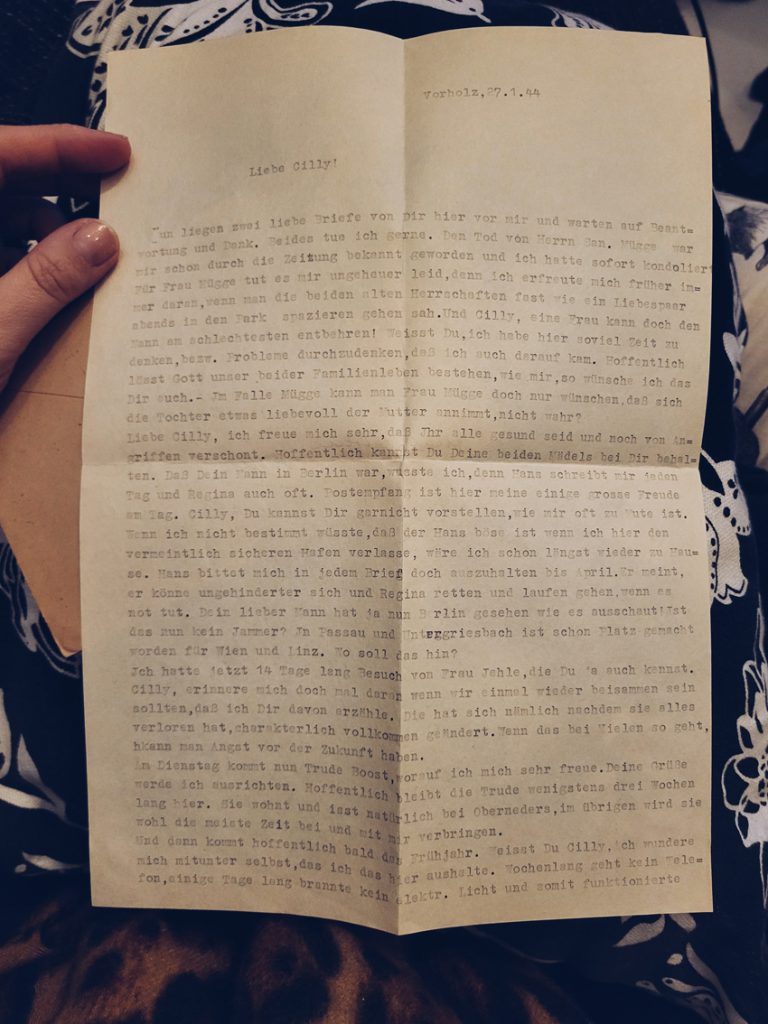 Vorholz,27.1.44
Liebe Cilly!
Nun liegen zwei liebe Briefe von Dir hier vor mir und warten auf Beant=
wortung und Dank. Beides tue ich gerne. Den Tod von Herrn San. Mügge war
mir schon durch die Zeitung bekannt geworden und ich hatte sofort kondoliert
Für Frau Mügge tut es mir ungeheuer leid,denn ich erfreute mich früher im=
mer daran,wenn man die beiden alten Herrschaften fast wie ein Liebespaar
abends in den Park spazieren gehen sah.Und Cilly, eine Frau kann doch den
Mann am schlechtesten entbehren! Weisst Du,ich habe hier soviel Zeit zu
denken,bezw. Probleme durchzudenken,daß ich auch darauf kam. Hoffentlich
lässt Gott unser beider Familienleben bestehen,wie mir,so wünsche ich das
Dir auch.- Jm Falle Mügge kann man Frau Mügge doch nur wünschen,daß sich
die Tochter etwas liebevoll der Mutter annimmt,nicht wahr?
Liebe Cilly, ich freue mich sehr,daß Jhr alle gesund seid und noch von An=
griffen verschont. Hoffentlich kannst Du Deine beiden Mädels bei Dir behal=
ten. Daß Dein Mann in Berlin war,wusste ich,denn Hans schreibt mir jeden
Tag und Regina auch oft. Postempfang ist hier meine einige grosse Freude
am Tag. Cilly, Du kannst Dir garnicht vorstellen,wie mir oft zu Mute ist.
Wenn ich nicht bestimmt wüsste,daß der Hans böse ist wenn ich hier den
vermeintlich sicheren Hafen verlasse, wäre ich schon längst wieder zu Hau=
se. Hans bittet mich in jedem Brief doch auszuhalten bis April.Er meint,
er könne ungehinderter sich und Regina retten und laufen gehen,wenn es
not tut. Dein lieber Mann hat ja nun Berlin gesehen wie es ausschaut!Ist
das nun kein Jammer? Jn Passau und Untergriesbach ist schon Platz gemacht
worden für Wien und Linz. Wo soll das hin?
Jch hatte jetzt 14 Tage lang Besuch von Frau Jehle,die Du ja auch kennst.
Cilly, erinnere mich doch mal daran wenn wir einmal wieder beisammen sein
sollten,daß ich Dir davon erzähle. Die hat sich nämlich nachdem sie alles
verloren hat,charakterlich vollkommen geändert.Wenn das bei Vielen so geht,
hkann man Angst vor der Zukunft haben.
Am Dienstag kommt nun Trude Boost,worauf ich mich sehr freue.Deine Grüße
werde ich ausrichten. Hoffentlich bleibt die Trude wenigstens drei Wochen
lang hier. Sie wohnt und isst natürlich bei Oberneders,im übrigen wird sie
wohl die meiste Zeit bei und mit mir verbringen.
Und dann kommt hoffentlich bald das Frühjahr. Weisst Du Cilly,ich wundere
mich mitunter selbst,das ich das hier aushalte. Wochenlang geht kein Tele=
fon,einige Tage lang brannte kein elektr. Licht und somit funktionierte